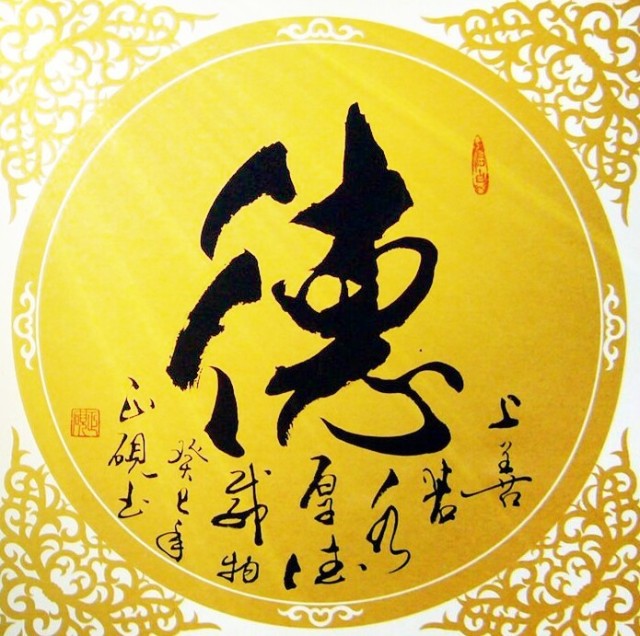 德
上善
若
水
厚德
载物
癸巳年
正砚书